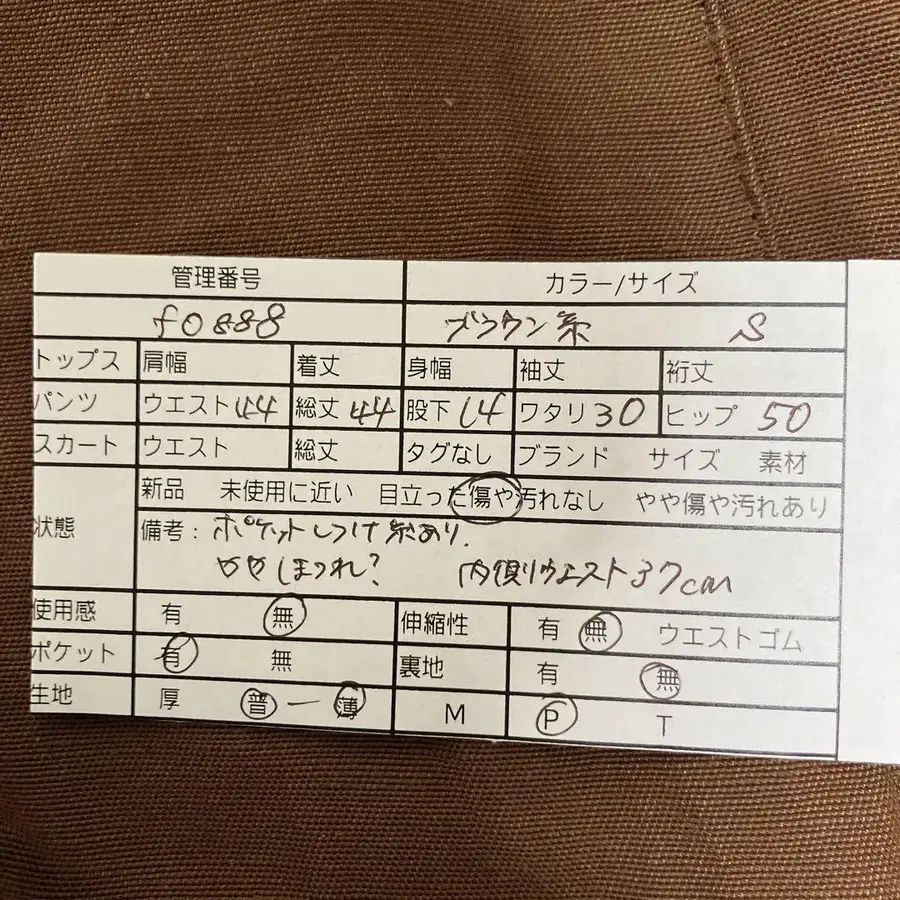 管理番号 カラー/サイズ
f0888 ブラウン系 S
トップス 肩幅 着丈 身幅 袖丈 裄丈
パンツ ウエスト44 総丈44 股下14 ワタリ30 ヒップ 50
スカート ウエスト 総丈 タグなし ブランド サイズ 素材
新品 未使用に近い 目立った傷や汚れなし やや傷や汚れあり
状態 備考：ポケットしつけ糸あり.
ややほつれ? 内側りウエスト37cm
使用感 有 無 伸縮性 有 無 ウエストゴム
ポケット 有 無 裏地 有 無
生地 厚 普ー薄 M P T